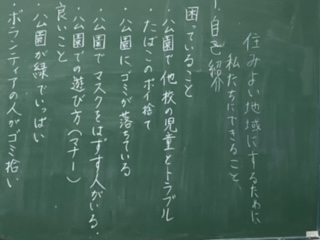 住みよい地域にするために
私たちにできること、
1.自己紹介
困っていること
・公園で他校の児童とトラブル
・たばこのポイ捨て
・公園に、ゴミが落ちている
・公園でマスクをはずす人がいる。
・公園での遊び方(マナー)
良いこと
・公園が緑でいっぱい
・ボランティアの人がゴミ拾い